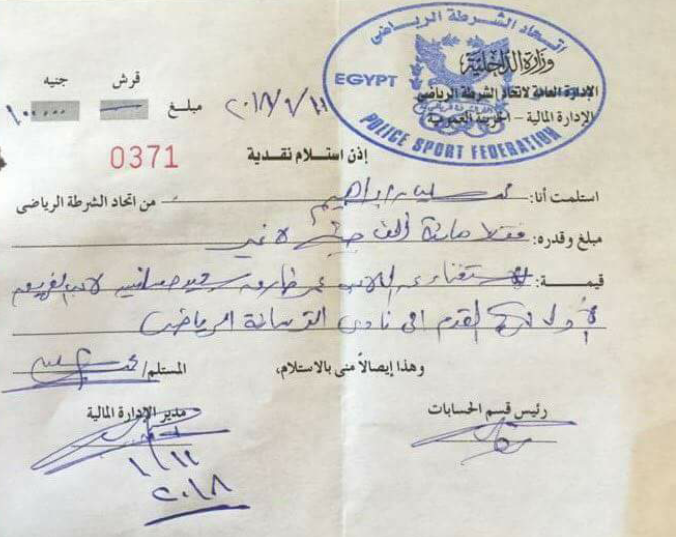 اتحاد الشرطة الرياضى
وزارة الداخلية
EGYPT
الإدارة العامة لاتحاد الشرطة الرياضى
الإدارة المالية - الخزينة العمومية
POLICE SPORT FEDERATION
قرش جنيه
مبلغ
إذن استلام نقدية
0371
استلمت أنا: محمد سليمان إبراهيم من اتحاد الشرطة الرياضى
مبلغ وقدره: فقط مائة ألف جنيه لا غير
قيمة: استغناء عن اللاعب عمر طارق سعيد لاعب الفريق
الأول لكرة القدم الى نادى الترسانة الرياضى
وهذا إيصالاً منى بالاستلام،
المستلم/
رئيس قسم الحسابات
مدير الإدارة المالية
٢٠١٨